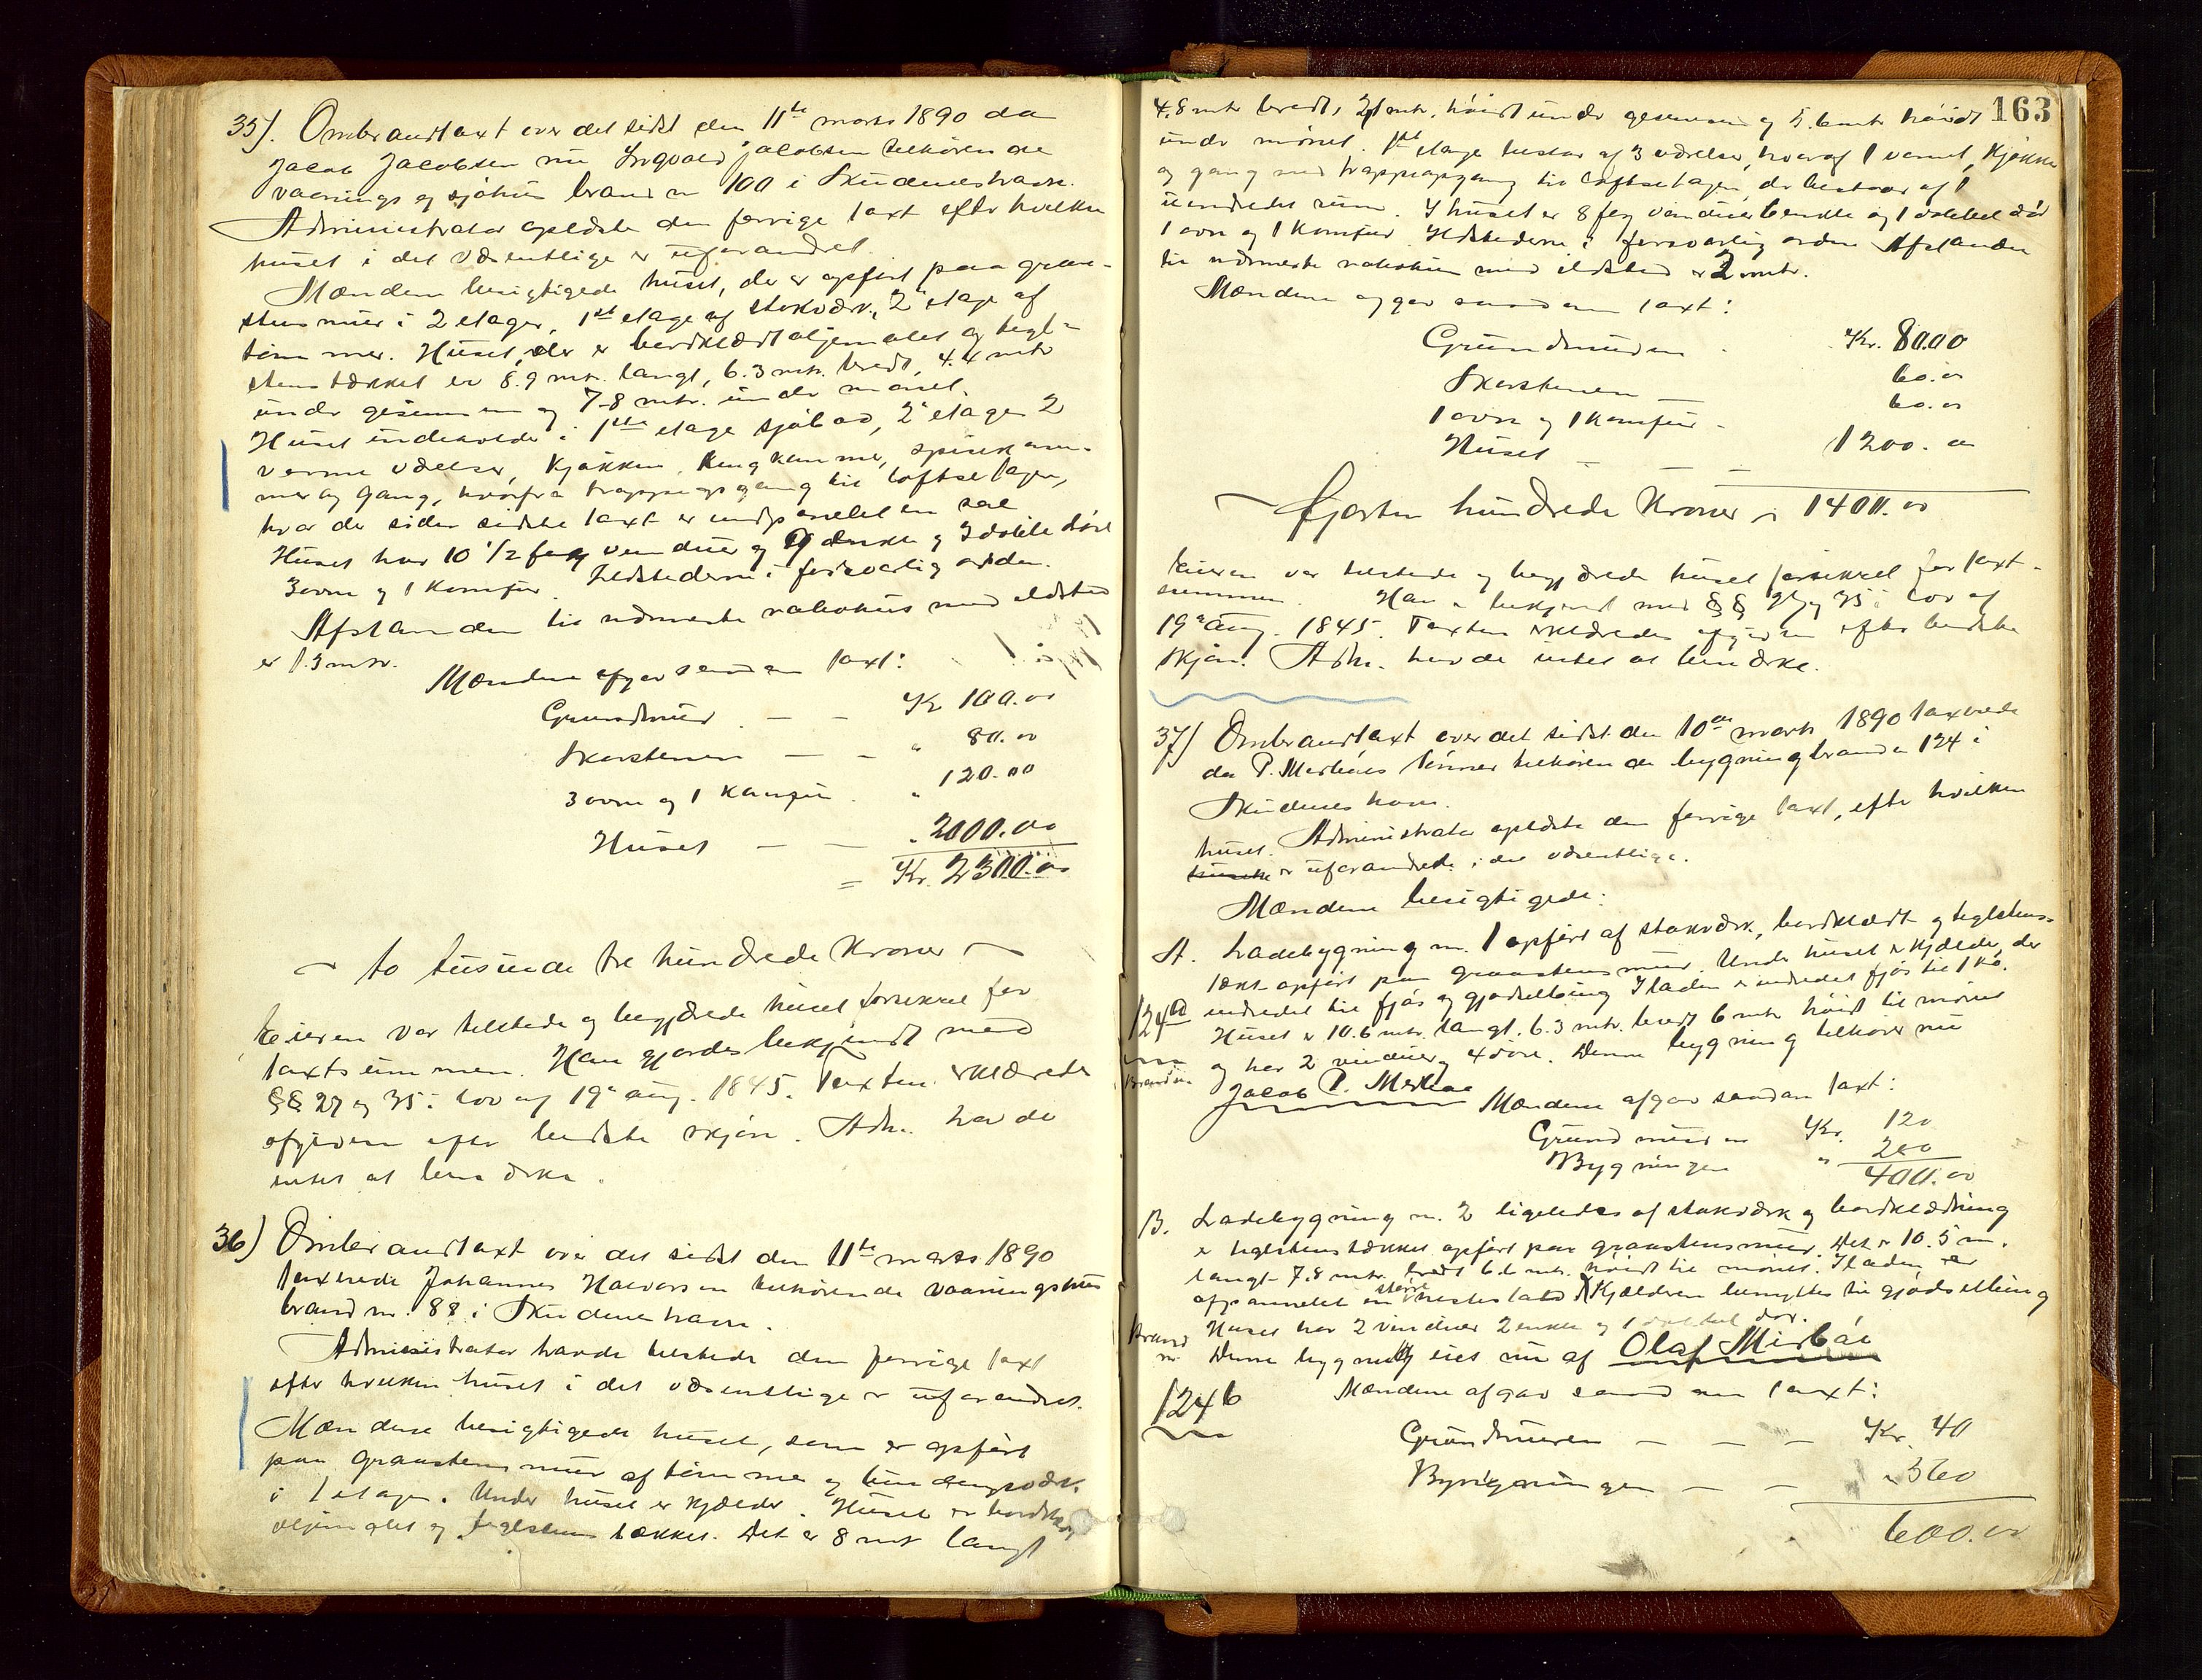 35). Ombrandtaxt over det sidst den 11te marts 1890 da
Jacob Jacobsen nu Ingvald Jacobsen tilhørende
vaanings og sjøhus brand no 100 i Skudeneshavn.
Administrator oplæste den forrige taxt efter hvilken
huset i det væsentlige er uforandret.
Mændene besigtigede huset, der er opført paa graa-
stensmur i 2 etager, 1ste etage af stokværk, 2 etage af
tømmer. Huset, der er bordklædt oljemalet og tegl-
stenstækket er 8.9 mtr. langt, 6.3 mtr. bredt, 4.4 mtr
under gesimsen og 7.8 mtr. under mønet.
Huset indeholder i 1ste etage sjøbod, 2 etage 2
varme værelser, kjøkken, kammer, spiskam-
mer og gang, hvorfra trappeopgang til loftsetagen,
hvor der siden sidste taxt er indpanelet en sal
Huset har 10 1/2 fag vinduer og 9 enkle og 3 doble døre
3 ovne og 1 komfur. Ildstederne i forsvarlig orden.
Afstanden til nærmeste nabohus med ildsted
er 1.3 mtr.
Mændene afgav saadan taxt:
Grundmur - - Kr 100.00
Skorstenen - - " 80.00
3 ovne og 1 Komfur . " 120.00
Huset - - " 2000.00
= Kr. 2300.00
~ to tusinde tre hundrede Kroner ~
Eieren var tilstede og begjærede huset forsikret for
taxtsummen. Han gjordes bekjendt med
§§ 27 og 35 i lov af 19 aug. 1845. Taxten erklæredes
afgiven efter bedste skjøn. Adm. havde
intet at bemærke.
36) Ombrandtaxt over det sidst den 11te marts 1890
taxerede Johannes Halvorsen tilhørende vaaningshus
brand no. 88 i Skudeneshavn.
Administrator havde tilstede den forrige taxt
efter hvilken huset i det væsentlige er uforandret.
Mændene besigtigede huset, som er opført
paa graastensmur af tømmer og bindingsværk
i 1 etage. Under huset er kjælder. Huset er bordklædt
oljemalet og teglstens tækket. Det er 8 mtr langt
163
4.8 mtr bredt, mtr. høidt under gesimsen og 5.6 mtr høidt
under mønet. 1ste etage bestaar af 3 værelser, hvoraf 1 varmt, Kjøkken
og gang med trappeopgang til loftsetagen, der bestaar af 1
uindredet rum. I huset er 8 fag vinduer enkle og 1 dobbel dør
1 ovn og 1 Komfur. Ildstederne i forsvarlig orden Afstanden
til nærmeste nabohus med ildsted er 2 mtr.
Mændene afgav saadan taxt:
Grundmuren . Kr. 80.00
Skorstenen _ 60.00
1 ovn og 1 Komfur - 60.00
Huset - - - 1200.00
~ fjorten hundrede Kroner 1400.00
Eieren var tilstede og begjærede huset forsikret for taxt-
summen. Han er bekjendt med §§ 27 og 35 i lov af
19 aug. 1845. Taxten erklæredes afgiven efter bedste
skjøn. Adm. havde intet at bemærke.
37) Ombrandtaxt over det sidst den 10de marts 1890 taxerede
da P. Medhaas tilhørende bygning brand no 124 i
Skudeneshavn.
Administrator oplæste den forrige taxt, efter hvilken
huset.
husene er uforandrede i det væsentlige.
Mændene besigtigede:
A. Ladebygning no. 1 opført af stokværk, bordklædt og teglstens-
tækt opført paa graastensmur. Under huset er kjælder, der
124a indredet til fjøs og gjødselbing I laden er indredet fjøs til 1 ko.
Huset er 10.6 mtr. langt. 6.3 mtr. bredt 6 mtr høidt til mønet
og har 2 vinduer og 4 døre. Denne bygning tilhører nu
Brand no
Jacob P. Medhaa Mændene afgav saadan taxt:
Grundmuren Kr. 120
Bygningen " 280
400.00
B. Ladebygning no. 2 ligeledes af stokværk og bordklædning
er teglstenstækket opført paa graastensmur. Det er 10.5 m.
langt 7.8 mtr. bredt 6.6 mtr. høidt til mønet. I laden er
større
afpanelet en hestestald Kjælderen benyttes til gjødselbing
Huset har 2 vinduer 2 enkle og 1 dobbel dør.
Brand
no Denne bygning eies nu af Olaf Midbøe
124b Mændene afgav saadan taxt:
Grundmuren - - - Kr. 40
Bygningen - - " 560
600.00